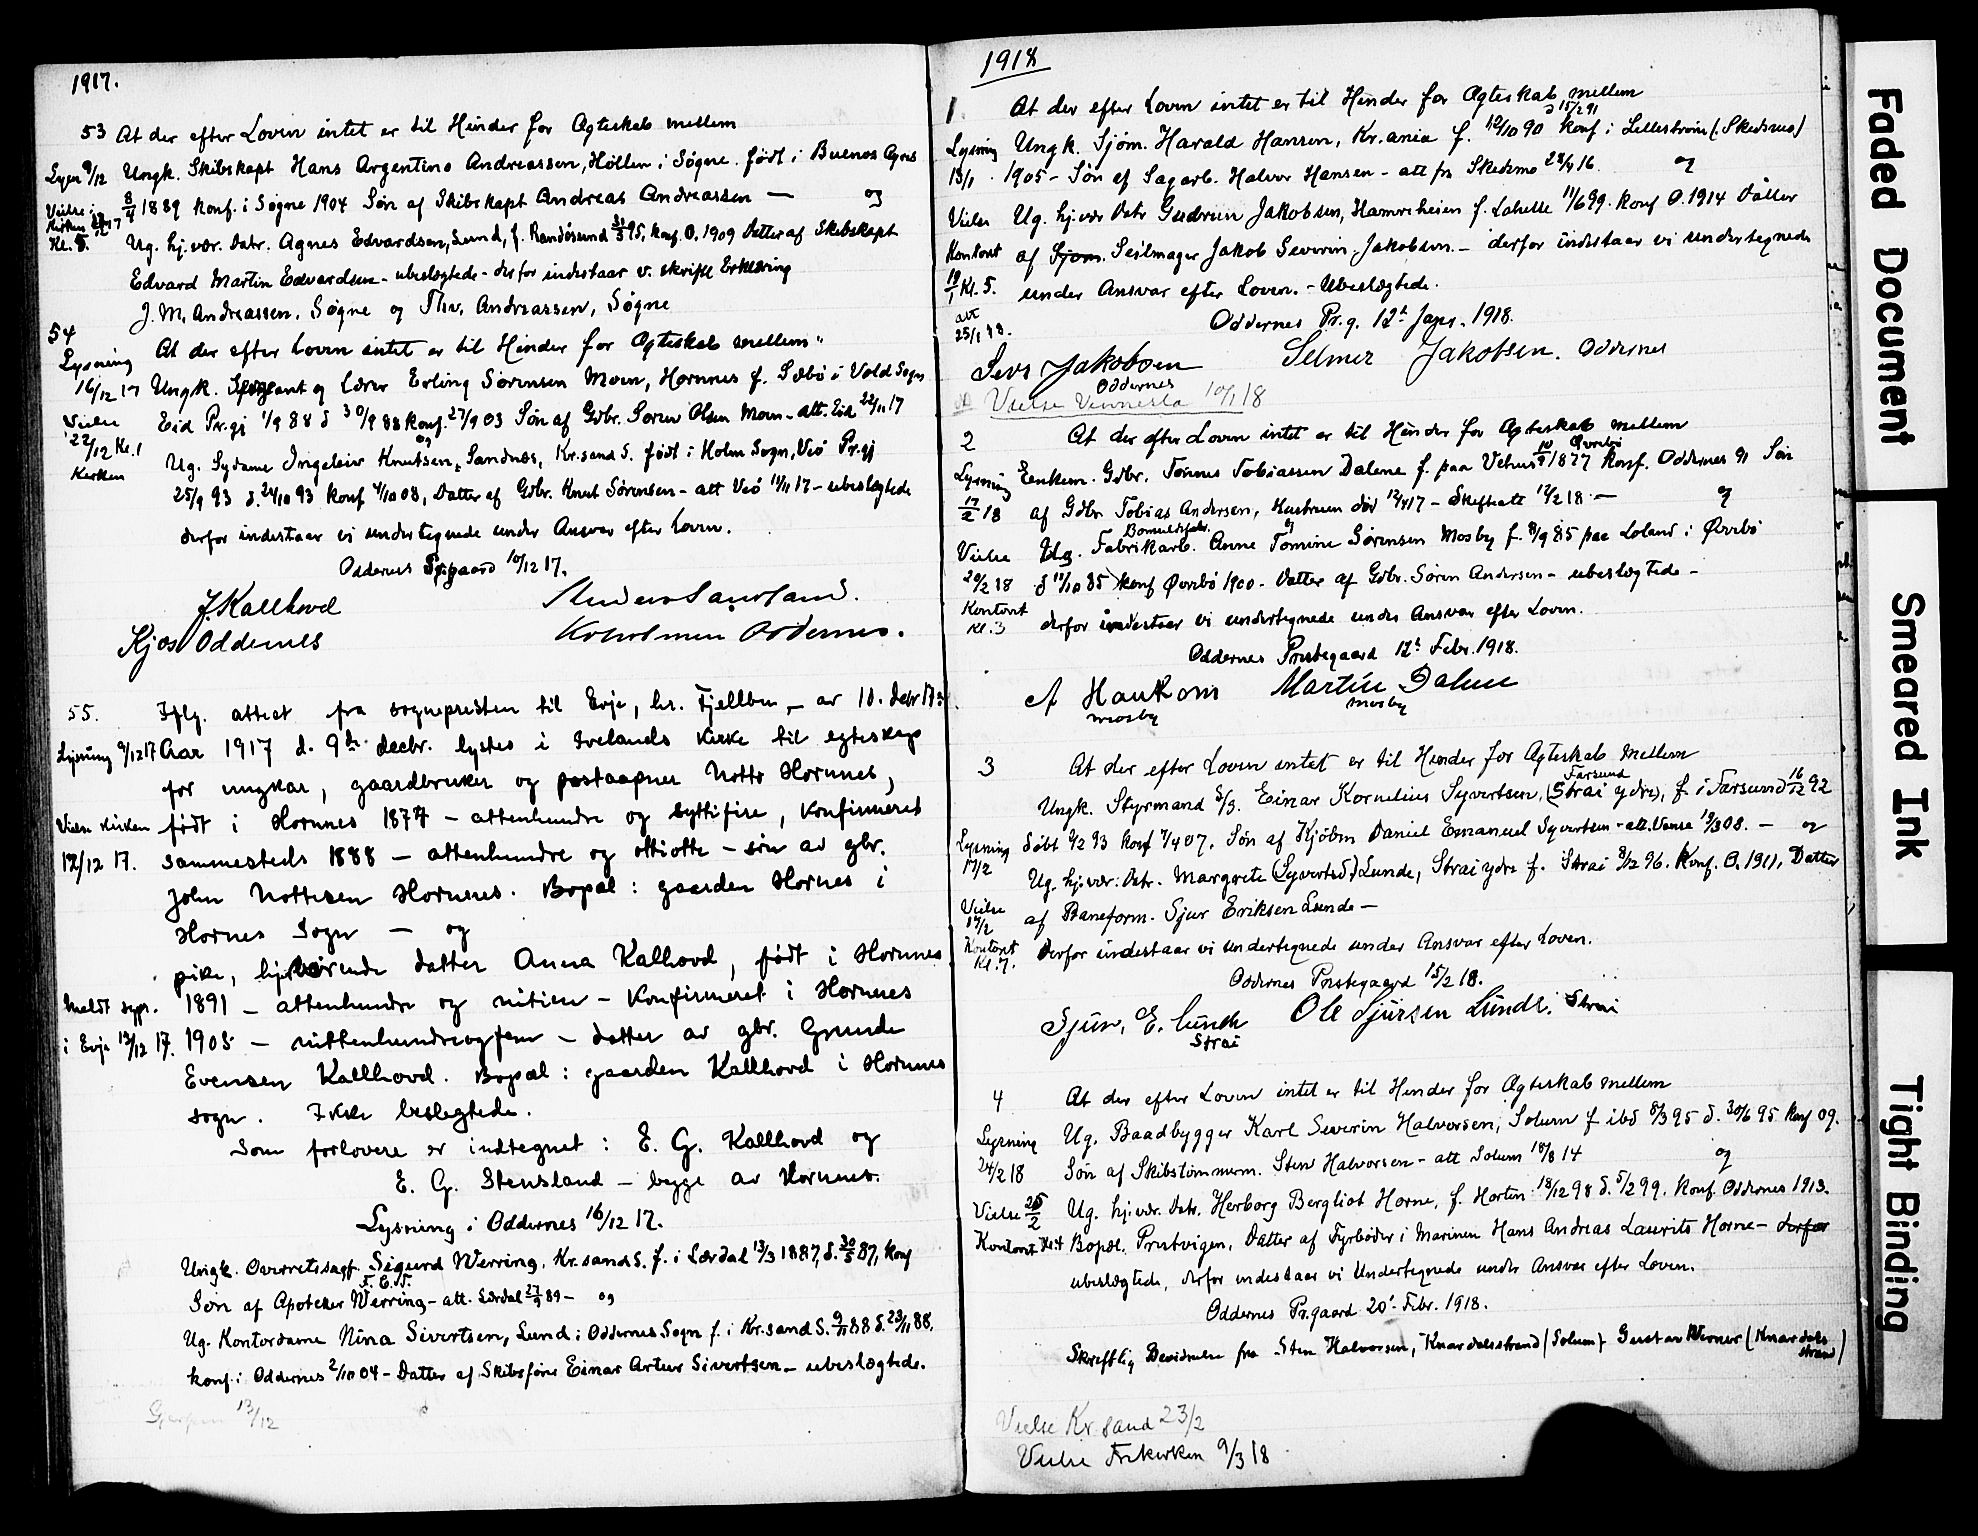 1917.
53 At der efter Loven intet er til Hinder for Ægteskab mellem
Lysn 9/12 Ungk. Skibskapt Hans Argentino Andreassen, Høllen i Søgne. født i Buenos Ayres
Vielse i Kirken Kl. 5. 8/4 1889 konf. i Søgne 1904 Søn af Skibskapt Andreas Andreassen — og
Ug. hj. vær. Datr. Agnes Edvardsen, Lund, f. Randøsund 31/3 95, konf. O. 1909 Datter af Skibskapt
Edvard Martin Edvardsen - ubeslægtede - derfor indestaar v. skriftl Erklæring
J. M. Andreassen, Søgne og Thv. Andreassen, Søgne
54
Lysning At der efter Loven intet er til Hinder for Ægteskab mellem
16/12 17 Ungk. Sergeant og Lærer Erling Sørensen Moen, Hornnes f. Sæbø i Vold Sogn
Vielse Eid Pr.gj 1/9 88 d 30/9 88 konf. 27/9 03 Søn af Gdbr. Søren Olsen Moen - att. Eid 22/11 17
22/12 Kl. 1 og
Kirken Ug. Sydame Ingeleiv Knutsen, Sandnæs, Kr.sand S. født i Holm Sogn, Veø Pr.gj
25/9 93 d. 24/10 93 konf 4/10 08, Datter af Gdbr. Knut Sørensen - att Veø 14/11 17 - ubeslægtede
derfor indestaar vi undertegnede under Ansvar efter Loven.
Oddernes Pr.gaard 10/12 17.
J. Kallhovd
Kjos Oddernes
Koholmen Oddernes.
55. Iflg. attest fra sognepresten til Evje, hr. Fjellbu, av 10. debr 17:
Lysning 9/12 17 Aar 1917 d. 9de decbr. lystes i Ivelands kirke til egteskap
for ungkar, gaardbruker og postaapner Notto Hornnes,
Vielse Kirken født i Hornnes 1874 - attenhundre og syttifire, konfirmeret
17/12 17. sammesteds 1888 - attenhundre og ottiotte - søn av gbr.
John Nottesen Hornnes. Bopæl: gaarden Hornes i
Hornes Sogn — og
pike, hjemværende datter Anna Kallhovd, født i Hornnes
Meldt sogpr. 1891 - attenhundre og nitien - konfirmeret i Hornnes
i Evje 13/12 17. 1905 - nittenhundreogfem - datter av gbr. Gunde
Evensen Kallhovd. Bopæl: gaarden Kallhovd i Hornnes
sogn. Ikke beslegtede.
Som forlovere er indtegnet: E. G. Kallhovd og
E. G. Stensland - begge av Hornnes.
Lysning i Oddernes 16/12 17.
Ungk. Overretssagf. Sigurd Werring, Kr.sand S. f. i Lærdal 13/3 1887, d. 30/5 87, konf
Søn af Apoteker F. E. S. Werring - att. Lærdal 27/9 89 - og
Ug. Kontordame Nina Sivertsen, Lund i Oddernes Sogn f. i Kr.sand S. 9/9 88 d. 23/11 88.
konf. i Oddernes 2/10 04 - Datter af Skibsfører Einar Artur Sivertsen - ubeslægtede.
13/12
1918
1. At der efter Loven intet er til Hinder for Ægteskab mellem
Lysning Ungk. Sjøm. Harald Hansen, Kr.ania f. 12/10 90 d 15/2 91 konf i Lillestrøm (: Skedsmo)
13/1. 1905 - Søn af Sagarb. Halvor Hansen - att fra Skedsmo 28/9 16. og
Vielse Ug. hj. vær Datr Gudrun Jakobsen, Hamreheien f. Lahelle 11/6 99. konf O. 1914 Datter
Kontoret af Sjøm. Seilmager Jakob Severin Jakobsen. - derfor indestaar vi undertegnede
19/1 Kl. 5. under Ansvar efter Loven. - Ubeslægtede.
att 25/1 18. Oddernes Pr.g. 12te Janr. 1918.
Sevr Jakobsen Oddernes
Selmer Jakobsen. Oddernes
Vielse Vennesla 10/1 18
2 At der efter Loven intet er til Hinder for Ægteskab mellem
Lysning Enkem. Gdbr. Tønnes Tobiassen Dalene f. paa Vehus Øvrebø 10/9 1877 konf. Oddernes 91 Søn
17/2 18 af Gdbr Tobias Andersen, Hustruen død 12/4 17 - Skifteatt 12/2 18 — og
Vielse Ug. Bomuldsfabr. Fabrikarb. Anne Tomine Sørensen Mosby f. 8/9 85 paa Loland i Øvrebø
20/2 18 d 11/10 85 konf Øvrebø 1900 - Datter af Gdbr. Søren Andersen - ubeslægtede -
Kontoret Kl. 3 derfor indestaar vi undertegnede under Ansvar efter Loven.
Oddernes Prestegaard 12te Febr. 1918.
A Haukom Mosby
Martin Dalene Mosby
3 At der efter Loven intet er til Hinder for Ægteskab mellem
Ungk. Styrmand S/S. Einar Kornelius Syvertsen, Farsund (Strai ydre), f. i Farsund 16/12 92
Lysning Døbt 9/2 93 konf 7/4 07. Søn af Kjøbm Daniel Emanuel Syvertsen - att. Vanse 19/3 08. — og
17/2 Ug. hj. vær: Datr. Margrete (Syvertsd) Lunde, Strai ydre f. Strai 8/12 96. konf. O. 1911, Datter
Vielse 17/2 af Baneform. Sjur Eriksen Lunde —
Kontoret Kl. 7. derfor indestaar vi undertegnede under Ansvar efter Loven.
Oddernes Prestegaard 15/2 18.
Sjur. E. Lunde Strai
Ole Sjursen Lunde. Strai
4 At der efter Loven intet er til Hinder for Ægteskab mellem
Lysning Ug. Baadbygger Karl Severin Halvorsen, Solum f ibd 8/3 95 d. 30/6 95 konf 09.
24/2 18 Søn af Skibstømmerm. Sten Halvorsen - att Solum 18/8 14 og
Vielse 25/2 Ug. hj. vær. Datr. Herborg Bergliot Horne, f. Horten 18/12 98 d. 5/2 99. konf. Oddernes 1913.
Kontoret Kl 4 Bopæl. Prestvigen, Datter af Fyrbøder i Marinen Hans Andreas Laurits Horne - derfor
ubeslægtede, derfor indestaar vi Undertegnede under Ansvar efter Loven.
Oddernes Pr.gaard 20' Febr. 1918.
Skriftlig Bevidnelse fra Sten Halvorsen, Knardalsstrand (Solum) Gustav Werner (Knardalsstrand)
Vielse Kr.sand 23/2
Vielse Frikirken 9/3 18
Faded Document
Smeared Ink
Tight Binding